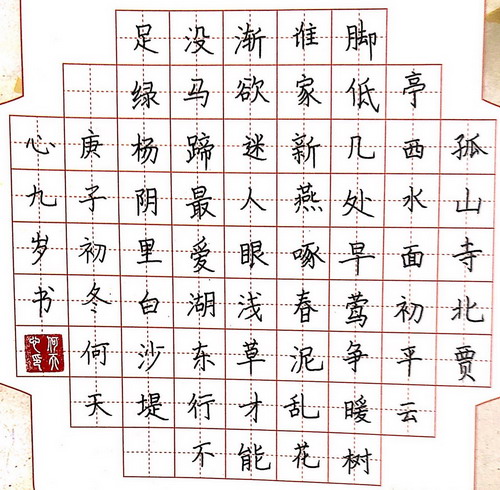 孤山寺北贾
亭西水面初平云
脚低几处早莺争暖树
谁家新燕啄春泥乱花
渐欲迷人眼浅草才能
没马蹄最爱湖东行不
足绿杨阴里白沙堤
庚子初冬何天
心九岁书
何天心印